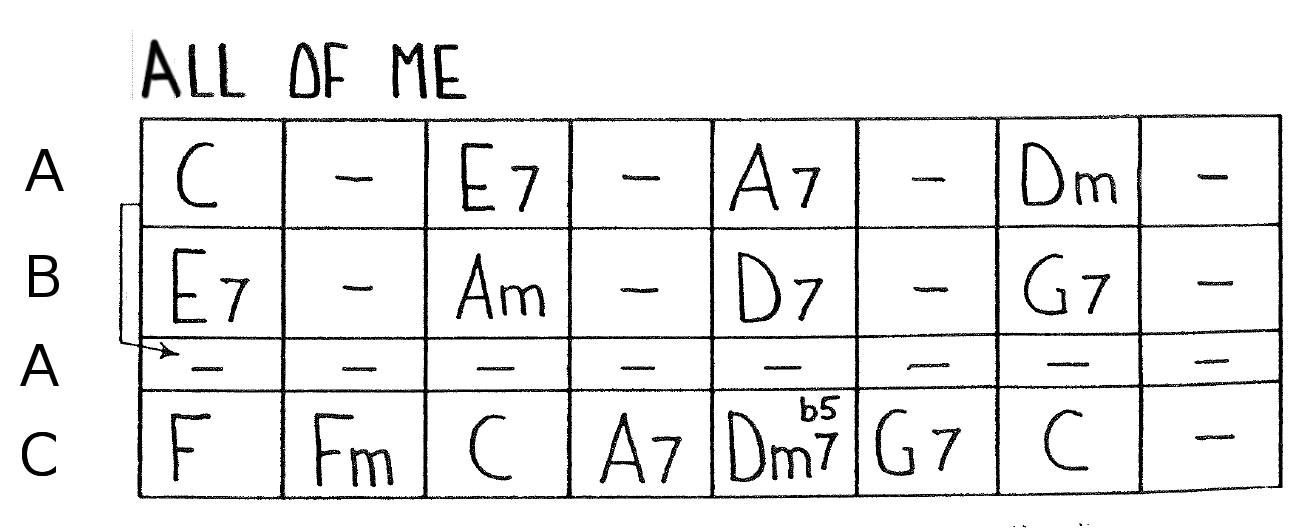 ALL OF ME
A C - E7 - A7 - Dm -
B E7 - Am - D7 - G7 -
A - - - - - - - -
C F Fm C A7 Dm7b5 G7 C -